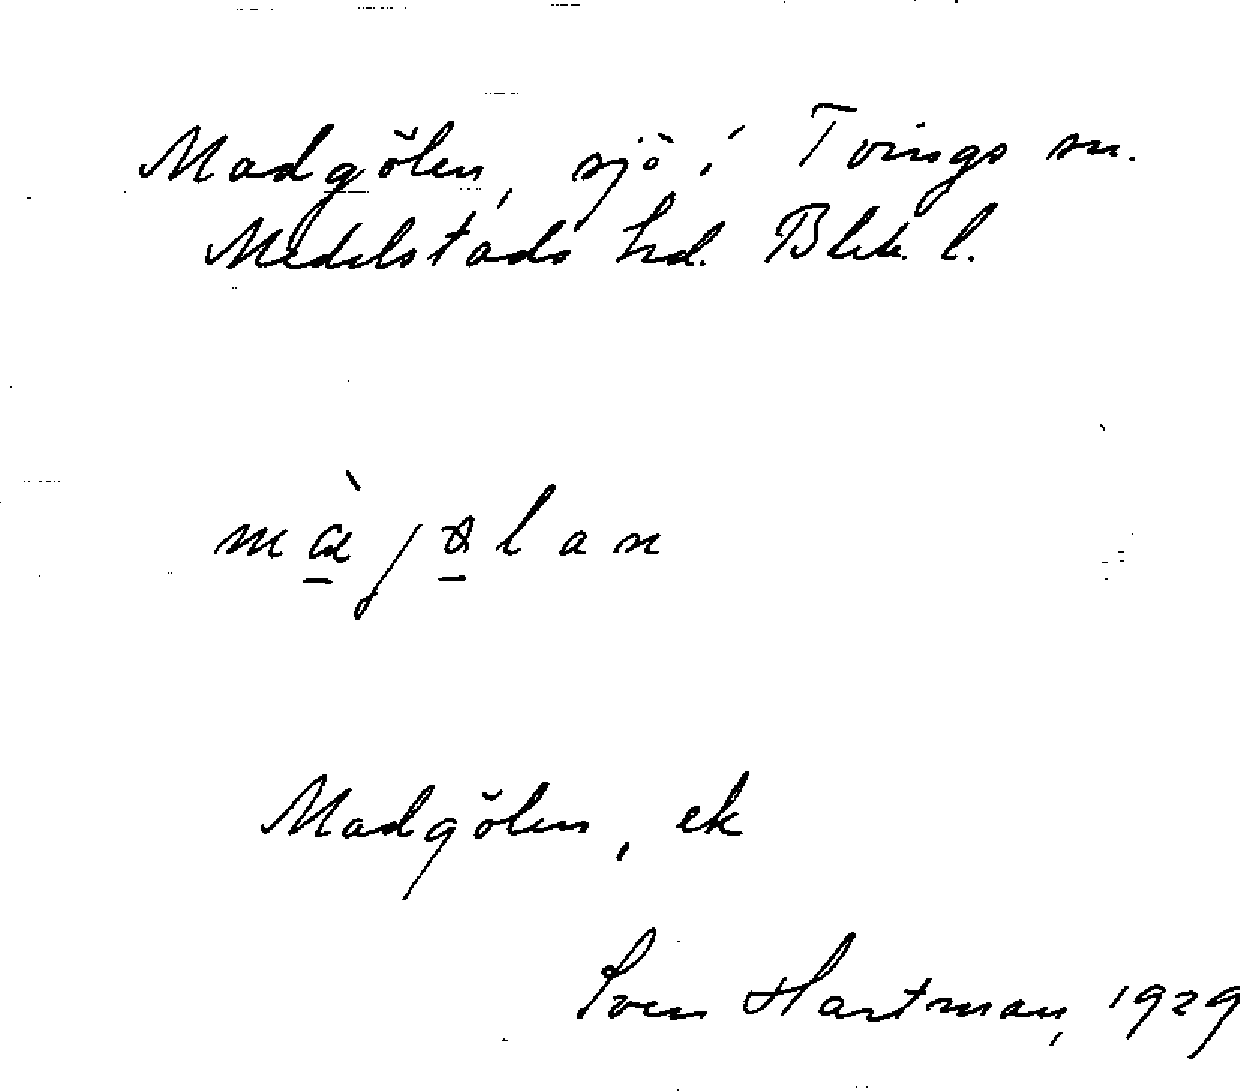 Madgölen, sjö i Tvings sn.
Medelstads hd. Blek. l.
Madgölen, ek
Sven Hartman, 1929